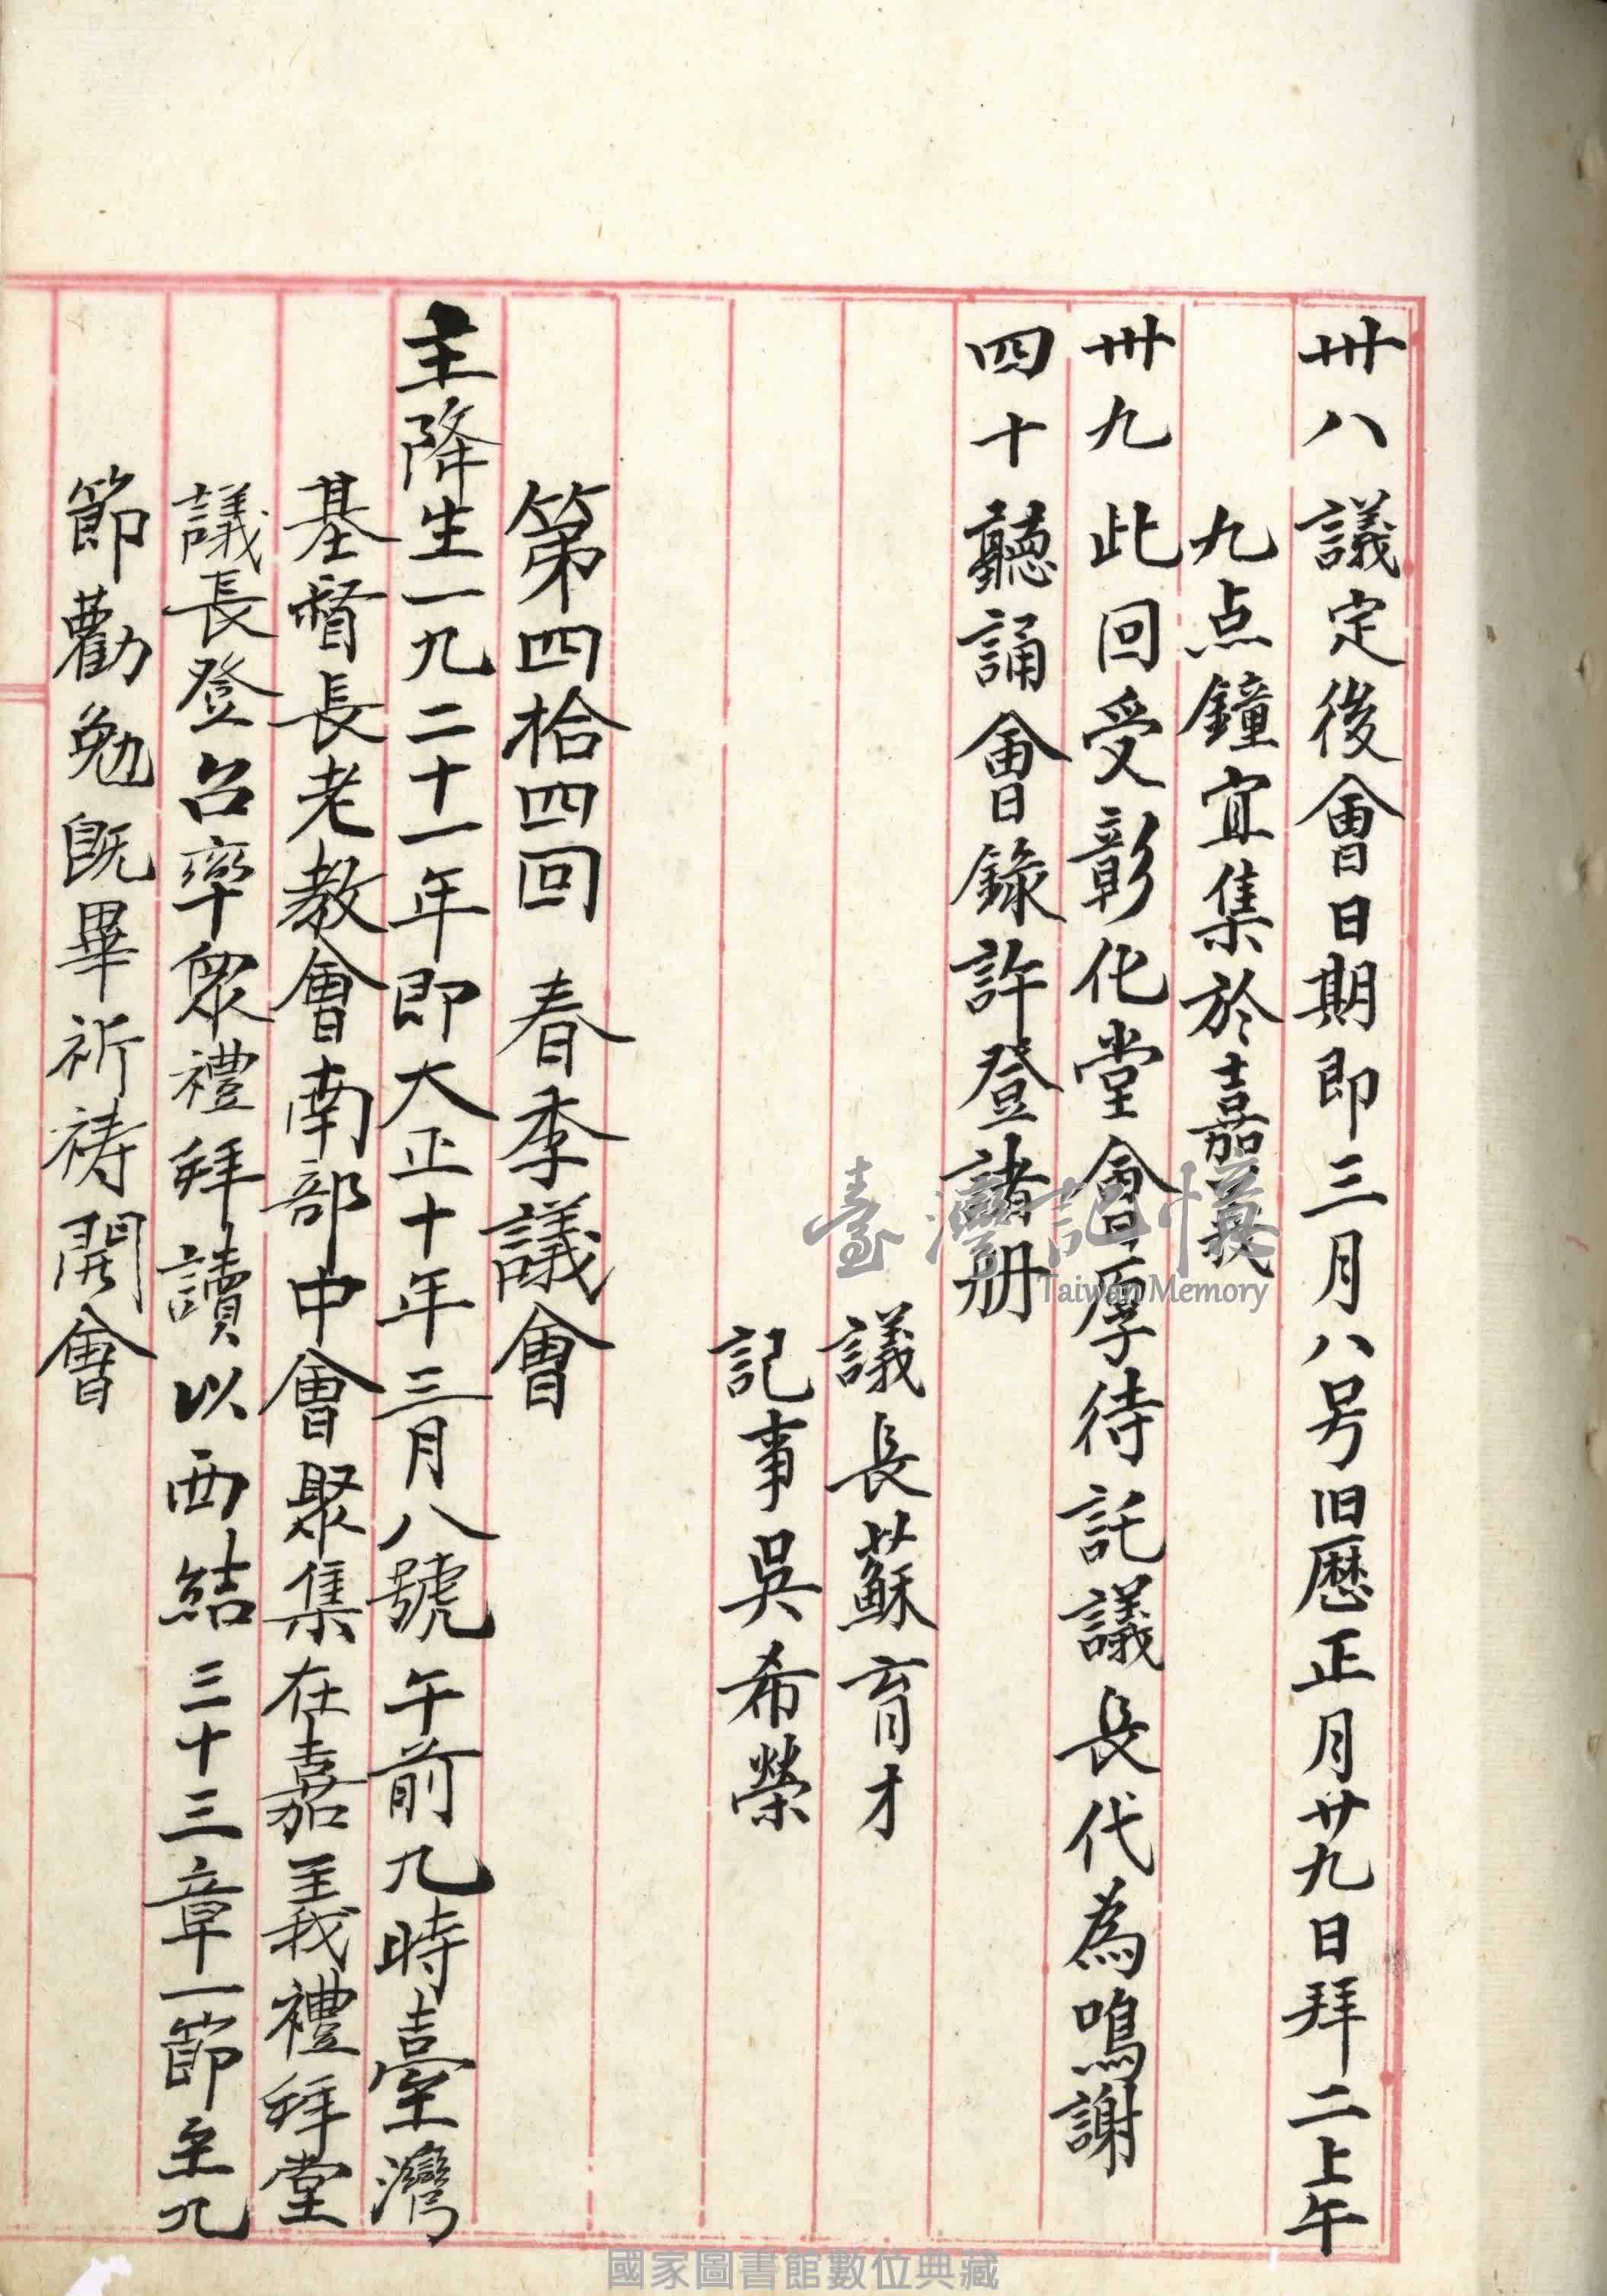 卅八 議定後會日期即三月八号旧曆正月廿九日拜二上午
九点鐘宜集於嘉義
卅九 此回受彰化堂會厚待託議長代為鳴謝
四十 聽誦會錄許登諸册
議長蘇育才
記事吳希榮
第四拾四回 春季議會
主降生一九二十一年即大正十年三月八號午前九時臺灣
基督長老教會南部中會聚集在嘉義禮拜堂
議長登召率眾禮拜讀以西結三十三章一節至九
節勸勉既畢祈禱開會
臺灣記憶
Taiwan Memory
國家圖書館數位典藏